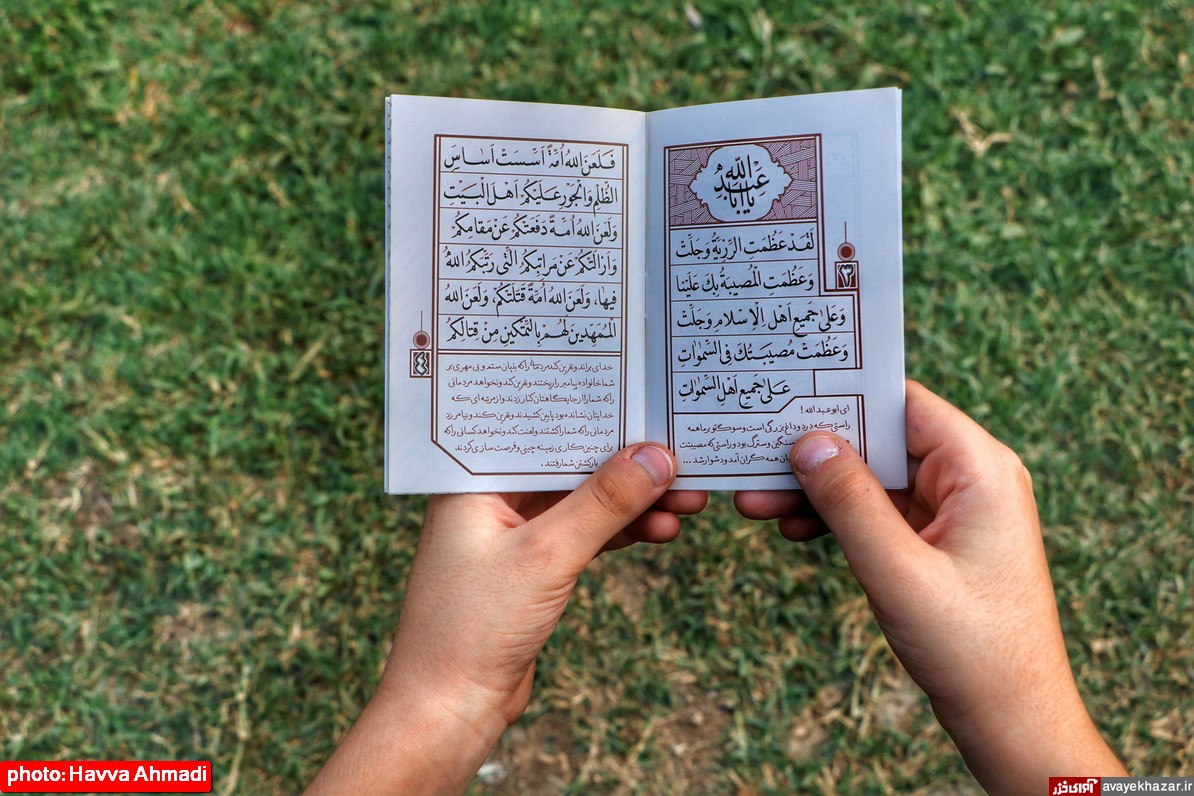 يا أبا عبد الله
لَقَدْ عَظُمَتِ الرَّزِيَّةُ وَجَلَّتْ
وَعَظُمَتِ الْمُصيبَةُ بِكَ عَلَيْنا
وَعَلىٰ جَميعِ اَهْلِ الْاِسْلامِ وَجَلَّتْ
وَعَظُمَتْ مُصيبَتُكَ فِى السَّمٰواتِ
عَلىٰ جَميعِ اَهْلِ السَّمٰواتِ
ای ابوعبدالله !
راستی که درد و داغ بزرگی است و سوگ تو بر ما همه
سنگین و سترگ بود و راستی که مصیبتت
همه گران آمد و دشوار شد ...
۳
فَلَعَنَ اللهُ اُمَّةً اَسَّسَتْ اَساسَ
الظُّلْمِ وَالْجَوْرِ عَلَيْكُمْ اَهْلَ الْبَيْتِ
وَلَعَنَ اللهُ اُمَّةً دَفَعَتْكُمْ عَنْ مَقامِكُمْ
وَاَزالَتْكُمْ عَنْ مَراتِبِكُمُ الَّتى رَتَّبَكُمُ اللهُ
فيها، وَلَعَنَ اللهُ اُمَّةً قَتَلَتْكُمْ، وَلَعَنَ اللهُ
الْمُمَهِّدينَ لَهُمْ بِالتَّمْكينِ مِنْ قِتالِكُمْ
خدای براند و نفرین کند مردمانی را که بنیان ستم و بی مهری بر
شما خانواده پیامبر را ریختند و نفرین کند و نخواهد مردمانی
را که شما را از جایگاهتان کنار زدند و از مرتبه ای که
خدایتان نشانده بود پایین کشیدند و نفرین کند و نیامرزد
مردمانی را که شما را کشتند و لعنت کند و نخواهد کسانی را که
برای چنین کاری زمینه چینی و فرصت سازی کردند
کشتن شما رفتند .
photo: Havva Ahmadi
آوای خزر avayekhazar.ir